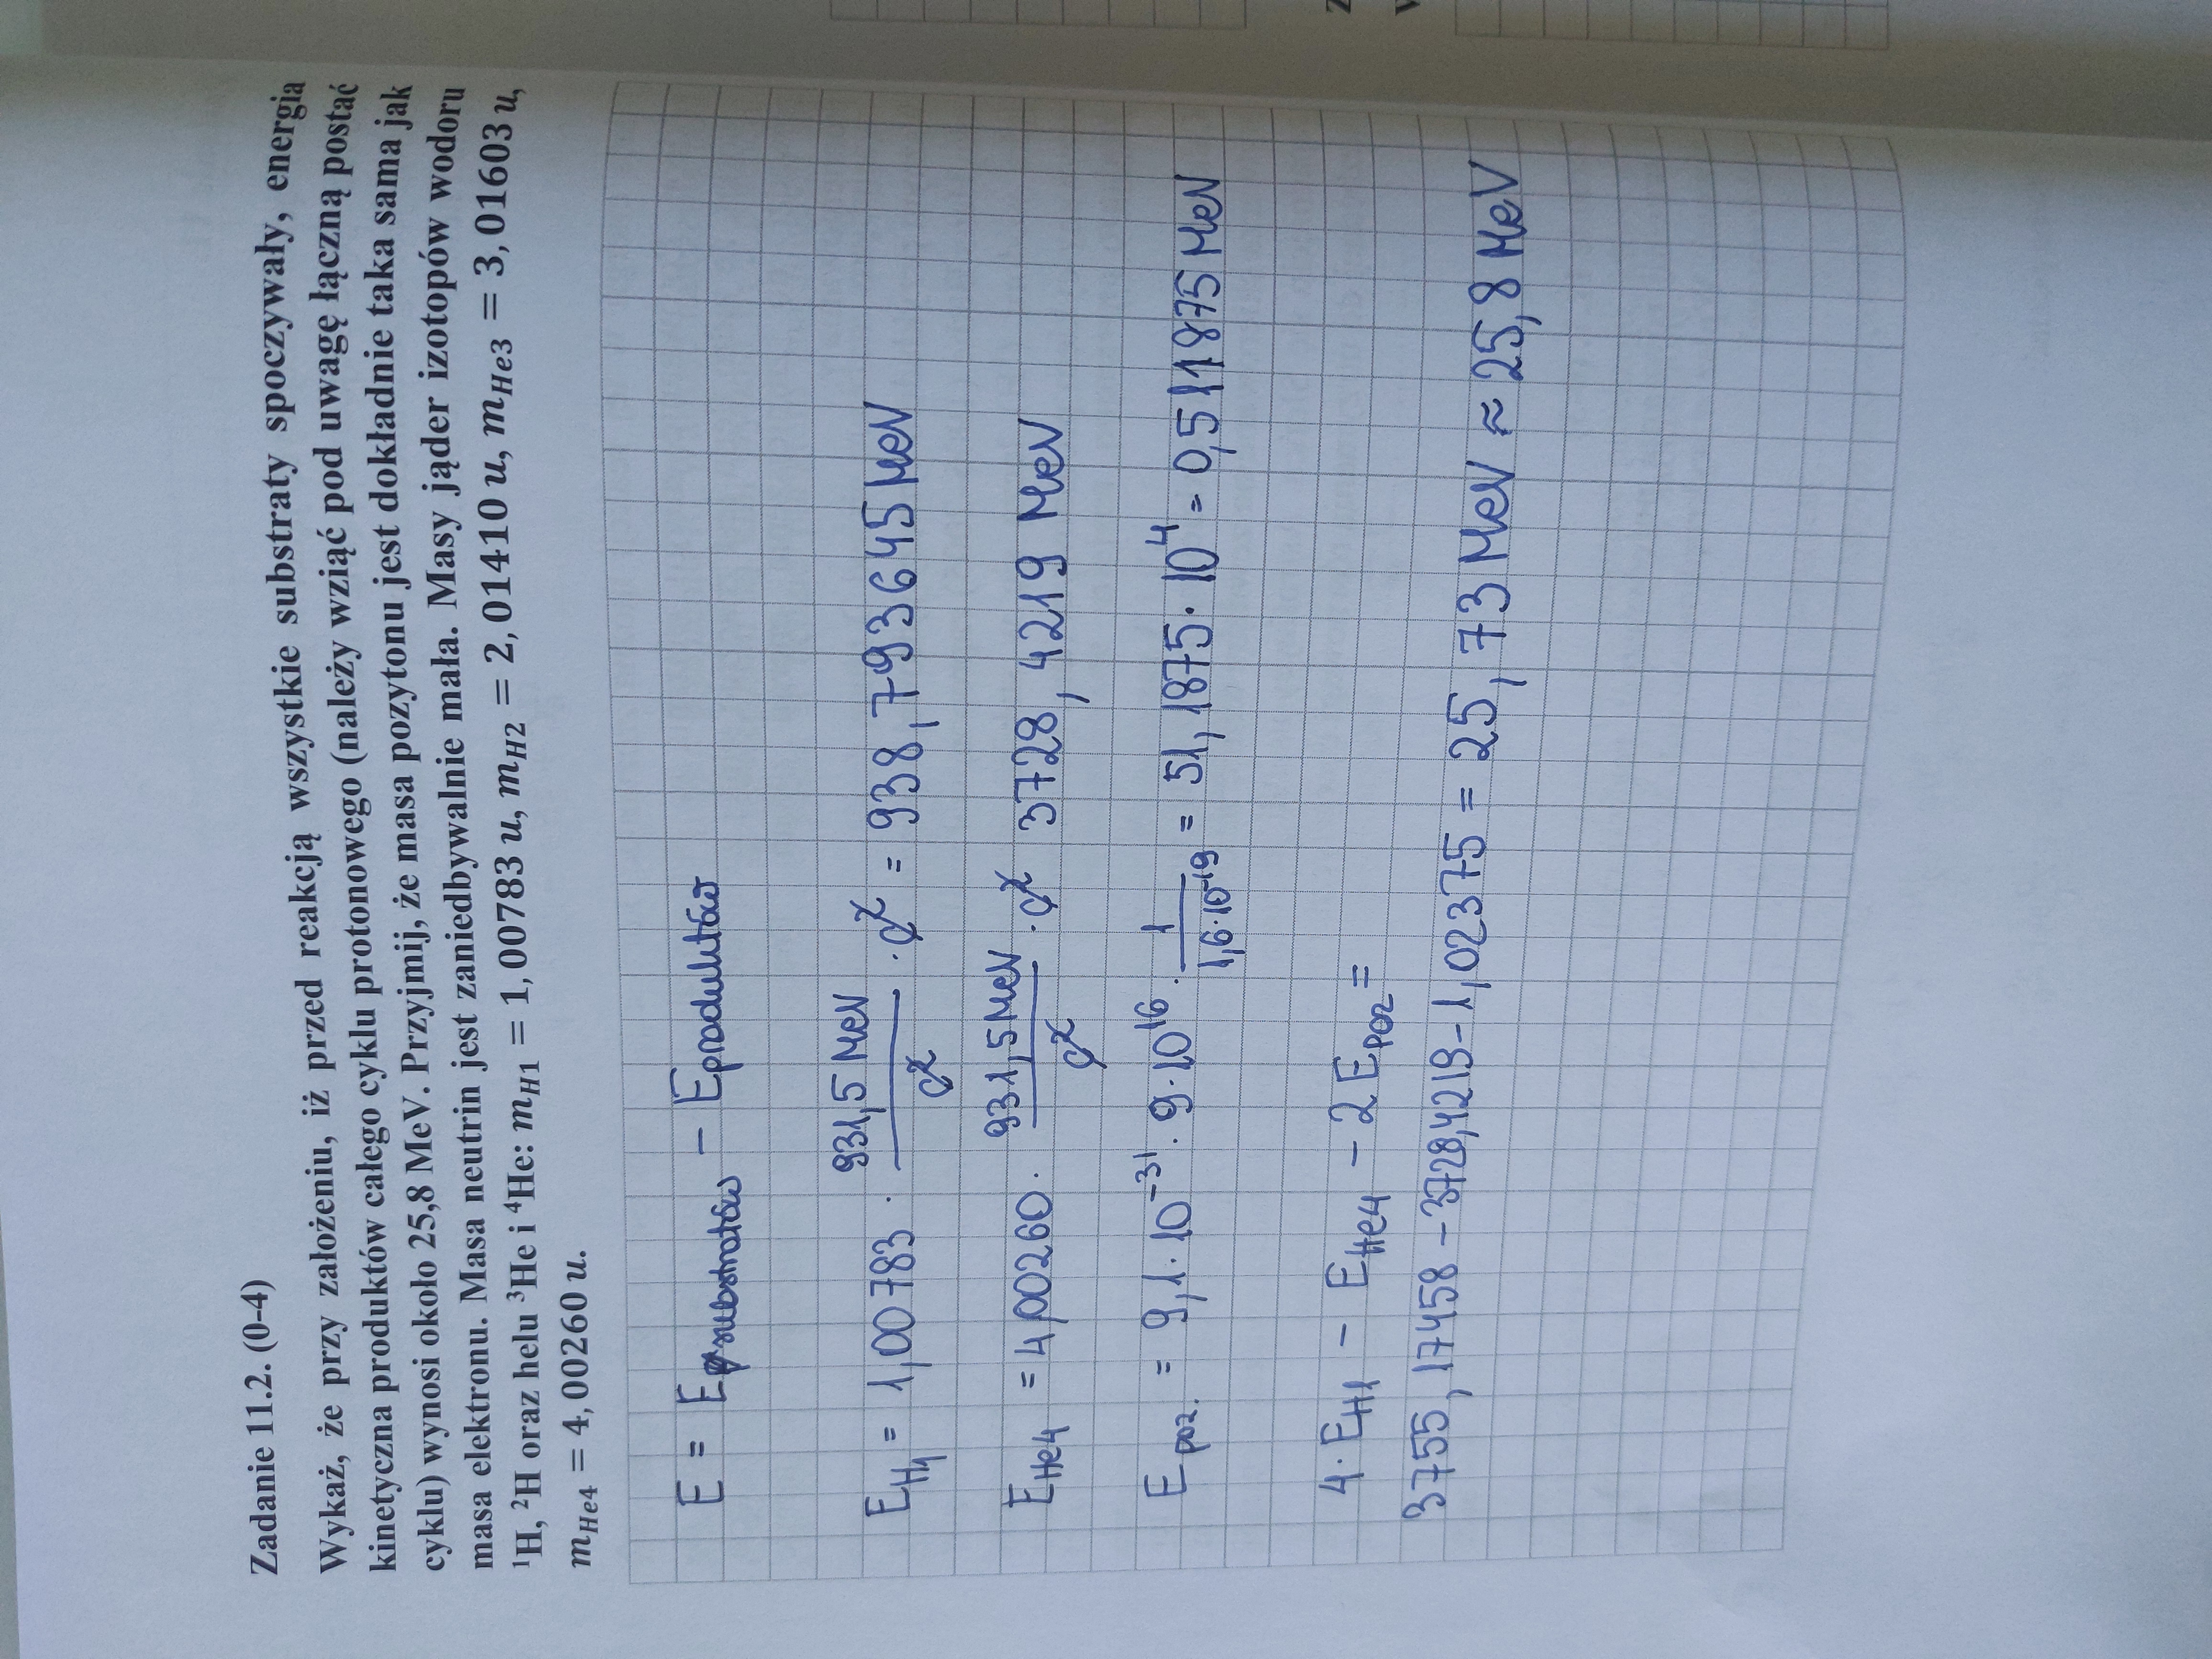 Zadanie 11.2. (0-4)
Wykaż, że przy założeniu, iż przed reakcją wszystkie substraty spoczywały, energia
kinetyczna produktów całego cyklu protonowego (należy wziąć pod uwagę łączną postać
cyklu) wynosi około 25,8 MeV. Przyjmij, że masa pozytonu jest dokładnie taka sama jak
masa elektronu. Masa neutrin jest zaniedbywalnie mała. Masy jąder izotopów wodoru
¹H, ²H oraz helu ³He i ⁴He: m_H1 = 1,00783 u, m_H2 = 2,01410 u, m_He3 = 3,01603 u,
m_He4 = 4,00260 u.
E = E substratów - E produktów
E_H1 = 1,00783 · 931,5 MeV/c² · c² = 938,793645 MeV
E_He4 = 4,00260 · 931,5 MeV/c² · c² 3728,4219 MeV
E poz. = 9,1 · 10⁻³¹ · 9 · 10¹⁶ · 1/1,6·10⁻¹⁹ = 51,1875 · 10⁴ = 0,511875 MeV
4 · E_H1 - E_He4 - 2 E_poz =
3755,17458 - 3728,4219 - 1,02375 = 25,73 MeV ≈ 25,8 MeV